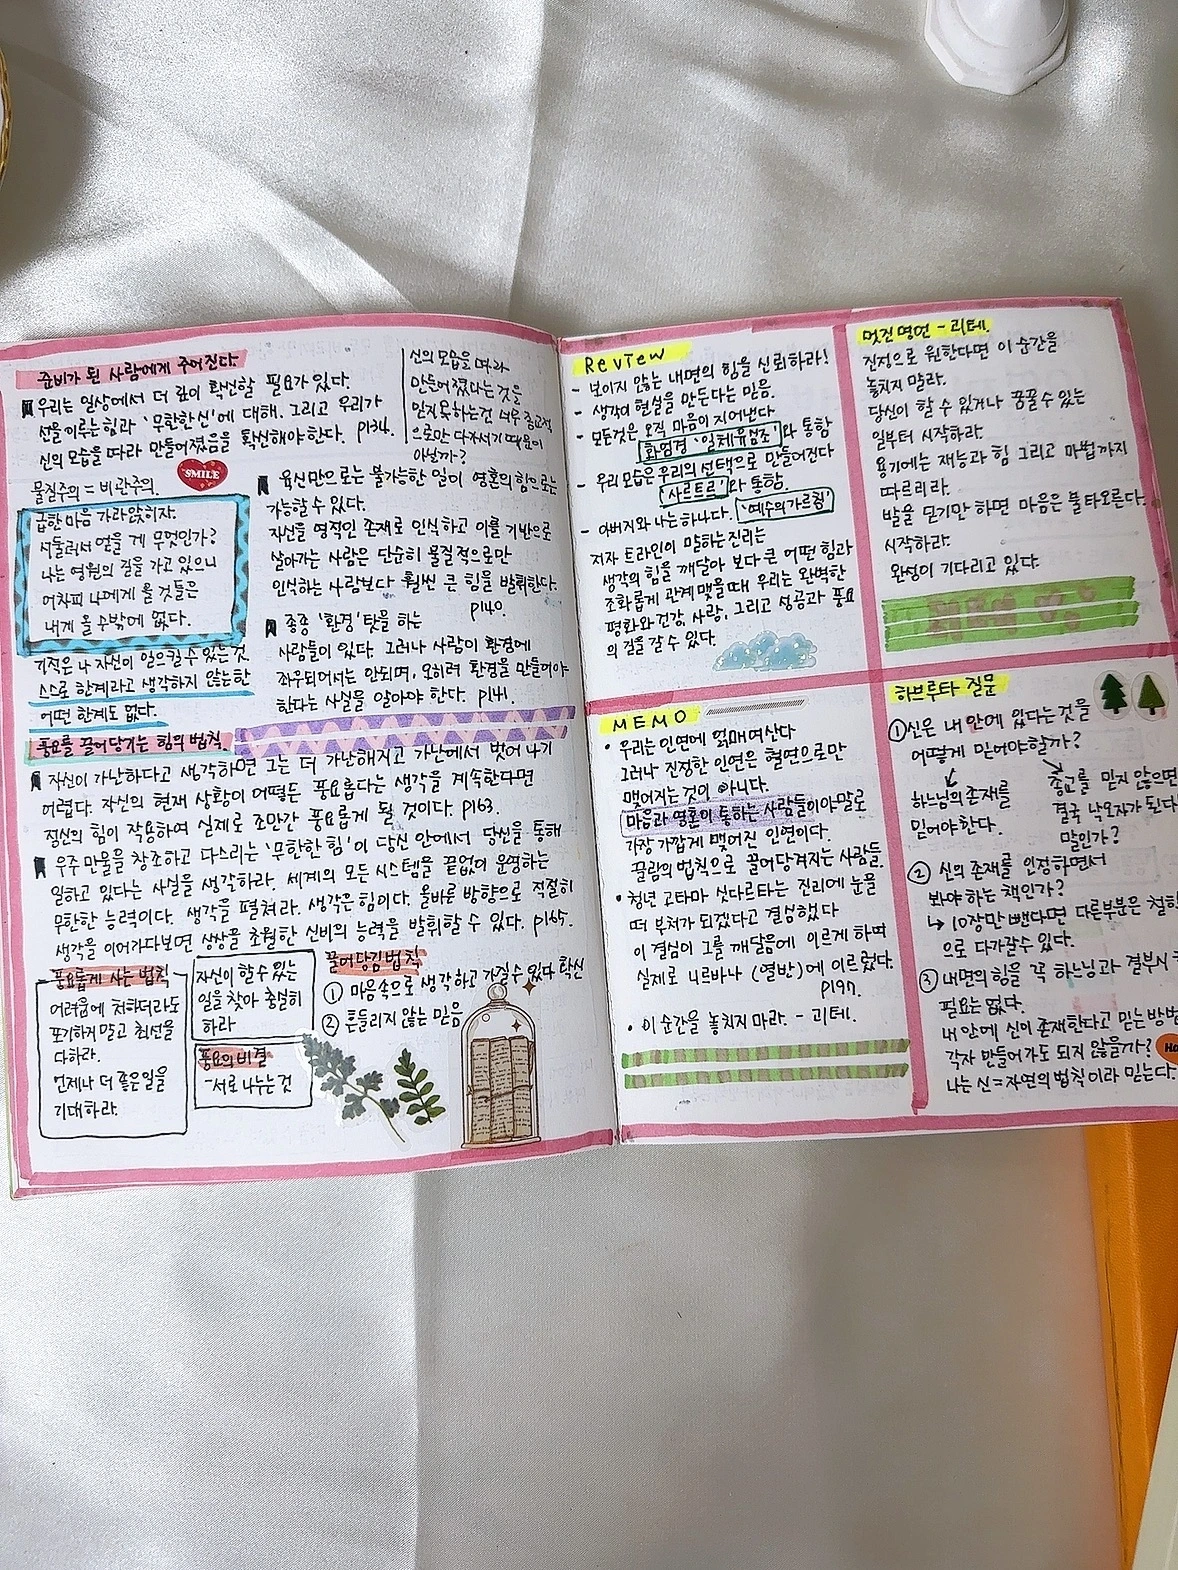 준비가 된 사람에게 주어진다.
우리는 일상에서 더 깊이 확신할 필요가 있다.
선을 이루는 힘과 '무한한 신'에 대해. 그리고 우리가
신의 모습을 따라 만들어졌음을 확신해야 한다. p134.
신의 모습을 따라
만들어졌다는 것을
믿지 못하는건 너무
으로만 다가서기 때문이
아닐까?
SMILE
물질주의 = 비관주의.
급한 마음 가라앉히자.
서둘러서 얻을 게 무엇인가?
나는 영원의 길을 가고 있으니
어차피 나에게 올 것들은
내게 올 수밖에 없다.
기적은 나 자신이 일으킬 수 있는 것
스스로 한계라고 생각하지 않는 한
어떤 한계도 없다.
육신만으로는 불가능한 일이 영혼의 힘으로는
가능할 수 있다.
자신을 영적인 존재로 인식하고 이를 기반으로
살아가는 사람은 단순히 물질적으로만
인식하는 사람보다 훨씬 큰 힘을 발휘한다.
p140.
종종 '환경' 탓을 하는
사람들이 있다. 그러나 사람이 환경에
좌우되어서는 안되며, 오히려 환경을 만들어야
한다는 사실을 알아야 한다. p141.
풍요를 끌어당기는 힘의 법칙.
자신이 가난하다고 생각하면 그는 더 가난해지고 가난에서 벗어나기
어렵다. 자신의 현재 상황이 어떻든 풍요롭다는 생각을 계속한다면
정신의 힘이 작용하여 실제로 조만간 풍요롭게 될 것이다. p163.
우주 만물을 창조하고 다스리는 '무한한 힘'이 당신 안에서 당신을 통해
일하고 있다는 사실을 생각하라. 세계의 모든 시스템을 끝없이 운영하는
무한한 능력이다. 생각을 펼쳐라. 생각은 힘이다. 올바른 방향으로 적절히
생각을 이어가다보면 상상을 초월한 신비의 능력을 발휘할 수 있다. p165.
풍요롭게 사는 법칙
어려움에 처하더라도
포기하지 말고 최선을
다하라.
언제나 더 좋은 일을
기대하라.
자신이 할 수 있는
일을 찾아 충실히
하라
풍요의 비결
- 서로 나누는 것
끌어당김 법칙
① 마음속으로 생각하고 가질 수 있다 확신
② 흔들리지 않는 믿음
Review
- 보이지 않는 내면의 힘을 신뢰하라!
- 생각이 현실을 만든다는 믿음.
- 모든것은 오직 마음이 지어낸다
화엄경 '일체유심조'와 통함
- 우리 모습은 우리의 선택으로 만들어진다
'사르트르'와 통함.
- 아버지와 나는 하나다. '예수의 가르침'
저자 트라인이 말하는 진리는
생각의 힘을 깨달아 보다 큰 어떤 힘과
조화롭게 관계 맺을 때 우리는 완벽한
평화와 건강, 사랑, 그리고 성공과 풍요
의 길을 갈 수 있다.
MEMO
• 우리는 인연에 얽매여 산다
그러나 진정한 인연은 혈연으로만
맺어지는 것이 아니다.
마음과 영혼이 통하는 사람들이야말로
가장 가깝게 맺어진 인연이다.
끌림의 법칙으로 끌어당겨지는 사람들.
• 청년 고타마 싯다르타는 진리에 눈을
떠 부처가 되겠다고 결심했다
이 결심이 그를 깨달음에 이르게 하며
실제로 니르바나 (열반)에 이르렀다.
p197.
• 이 순간을 놓치지 마라. - 괴테.
멋진 명언 - 괴테.
진정으로 원한다면 이 순간을
놓치지 말라.
당신이 할 수 있거나 꿈꿀 수 있는
일부터 시작하라.
용기에는 재능과 힘 그리고 마법까지
따르리라.
발을 딛기만 하면 마음은 불타오른다.
시작하라.
완성이 기다리고 있다.
하브루타 질문
① 신은 내 안에 있다는 것을
어떻게 믿어야 할까?
하느님의 존재를
믿어야 한다.
종교를 믿지 않으면
결국 낙오자가 된다
말인가?
② 신의 존재를 인정하면서
봐야 하는 책인가?
↳ 10장만 뺀다면 다른부분은
으로 다가갈 수 있다.
③ 내면의 힘을 꼭 하느님과 결부시
필요는 없다.
내 안에 신이 존재한다고 믿는 방법
각자 만들어가도 되지 않을까?
나는 신=자연의 법칙이라 믿는다.